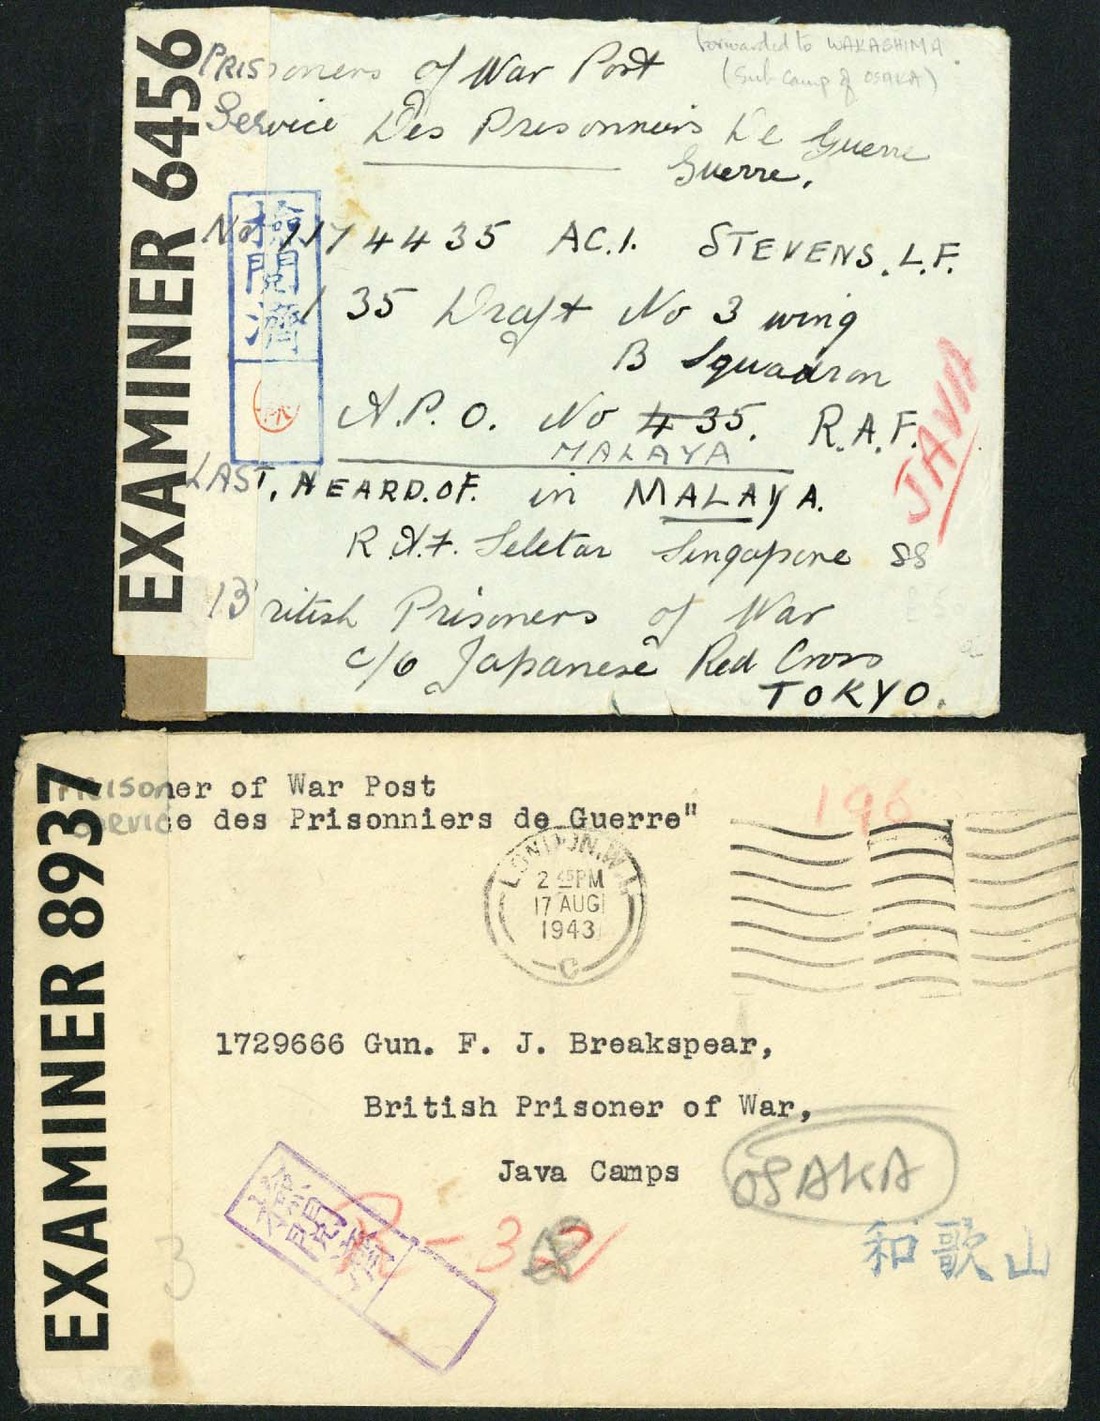 EXAMINER 6456
forwarded to WAKASHIMA
(Sub camp of OSAKA)
Prisoners of War Post
Service Des Prisonniers De Guerre
Guerre.
検閲濟
No 1174435 AC.1. STEVENS. L.F.
35 Draft No 3 wing
B Squadron
A.P.O. No 435. R.A.F.
MALAYA
JAVA
LAST, HEARD.OF. in MALAYA.
R.A.F. Seletar Singapore SS
British Prisoners of War
c/o Japanese Red Cross
TOKYO.
EXAMINER 8937
Prisoner of War Post
Service des Prisonniers de Guerre"
196
LONDON.W.1.
2 45PM
17 AUG
1943
C
1729666 Gun. F. J. Breakspear,
British Prisoner of War,
Java Camps
OSAKA
検閲濟
和歌山
3